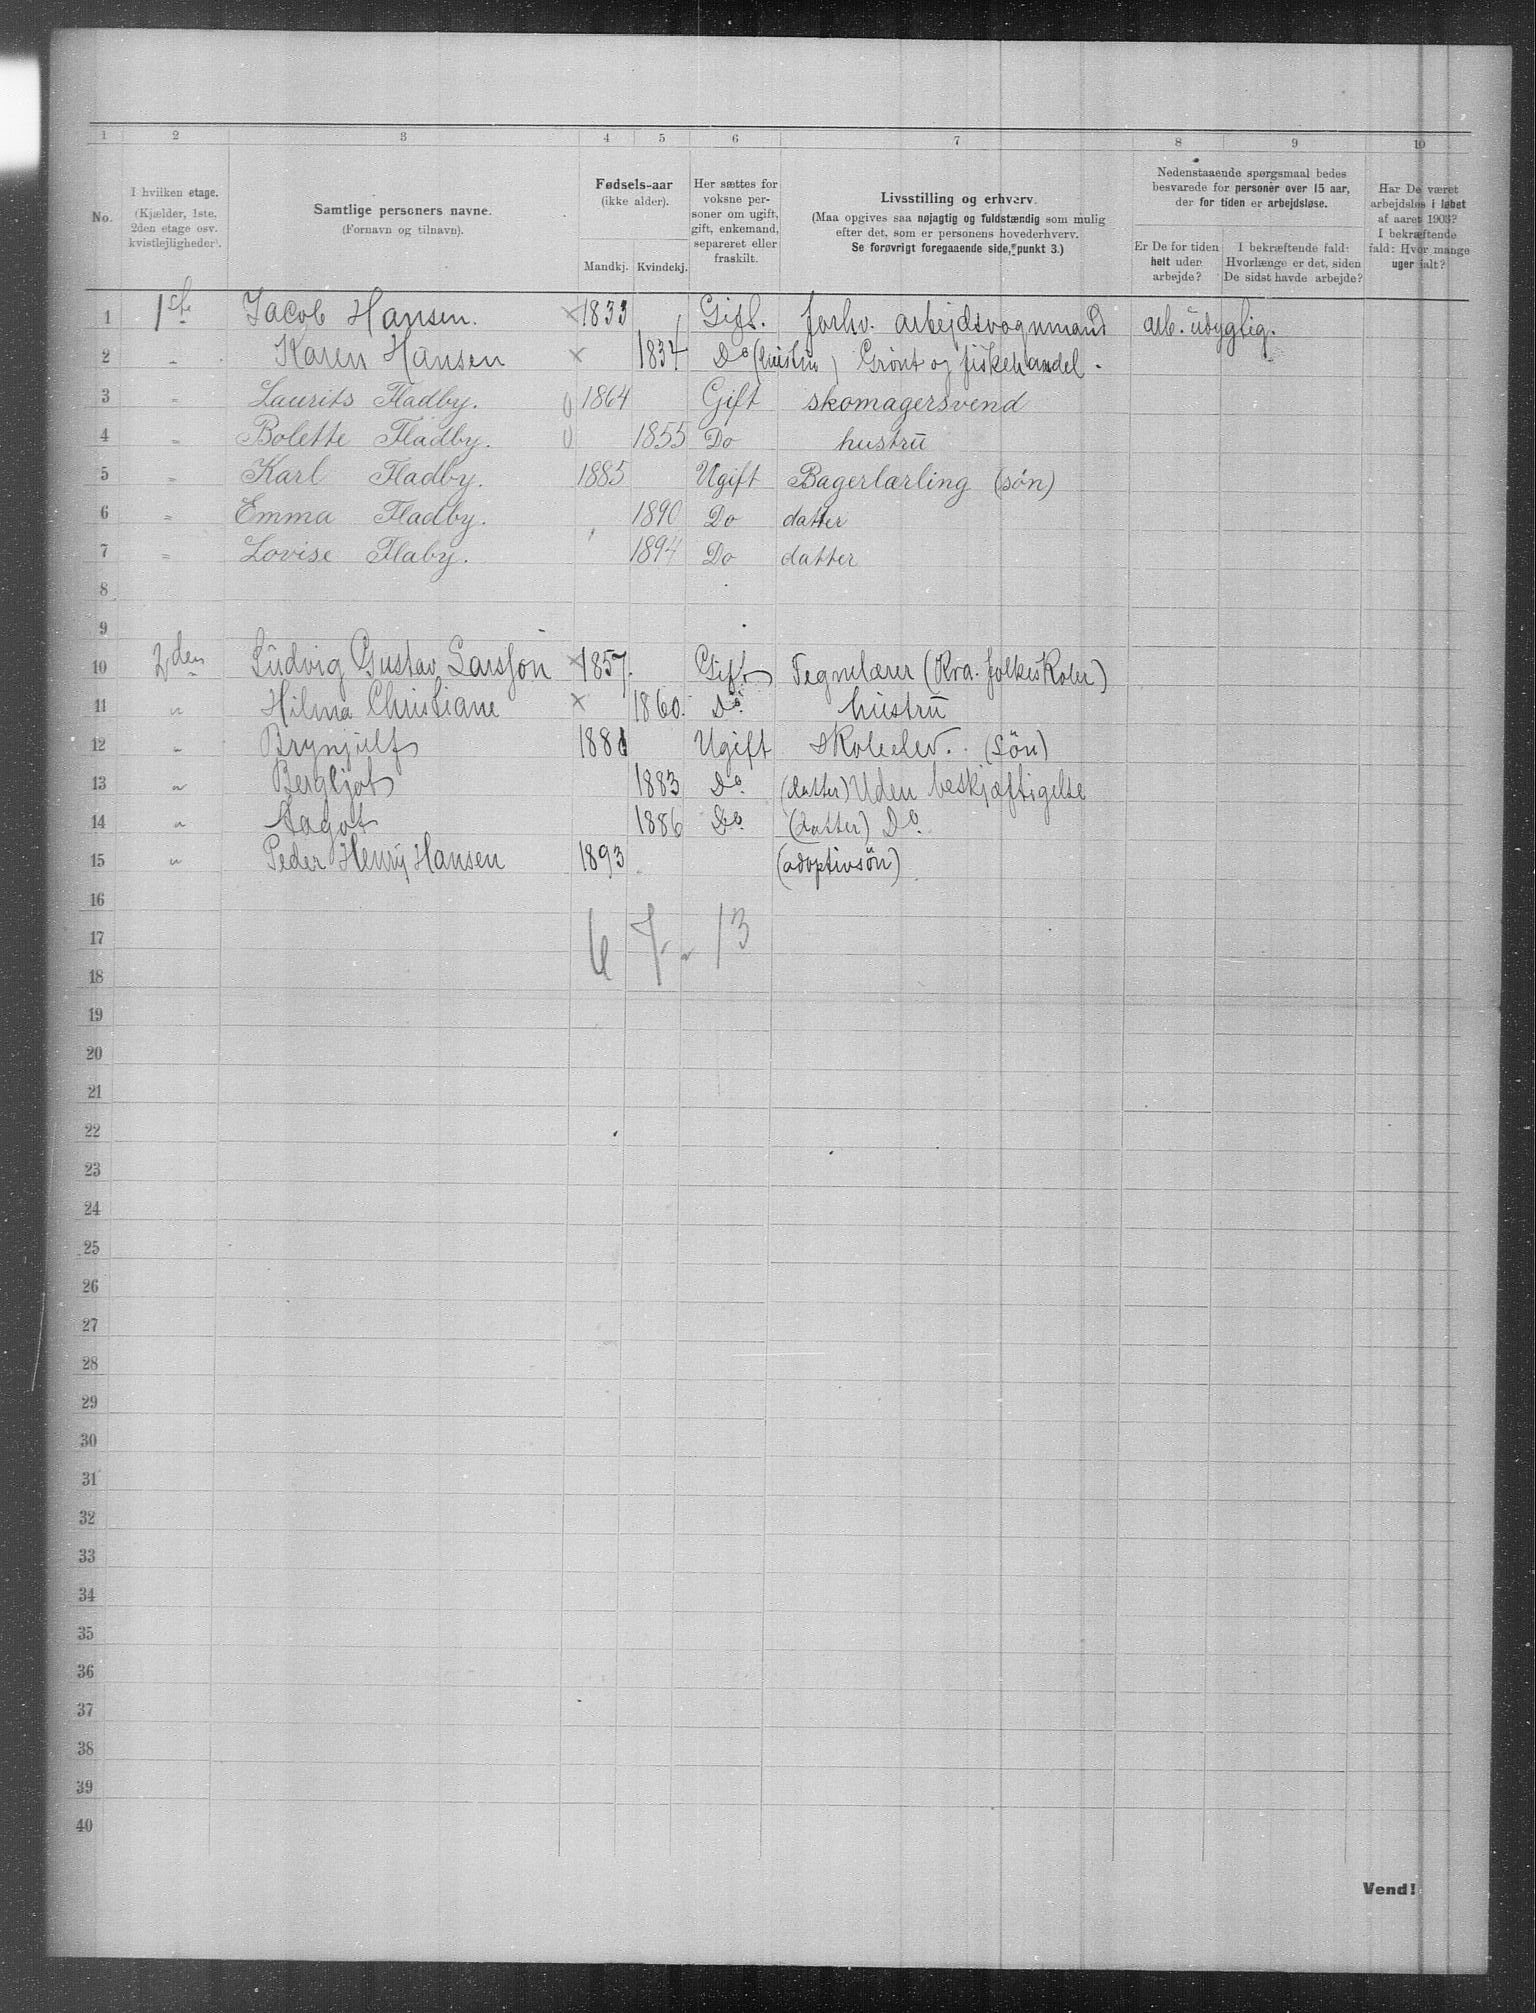 1 2 3 4 5 6 7 8 9 10
No.
I hvilken etage.
(Kjælder, 1ste,
2den etage osv.
kvistlejligheder).
Samtlige personers navne.
(Fornavn og tilnavn).
Fødsels-aar
(ikke alder).
Mandkj. Kvindekj.
Her sættes for
voksne per-
soner om ugift,
gift, enkemand,
separeret eller
fraskilt.
Livsstilling og erhverv.
(Maa opgives saa nøjagtig og fuldstændig som mulig
efter det, som er personens hovederhverv.
Se forøvrigt foregaaende side, punkt 3.)
Nedenstaaende spørgsmaal bedes
besvarede for personer over 15 aar,
der for tiden er arbejdsløse.
Er De for tiden
helt uden
arbejde?
I bekræftende fald:
Hvorlænge er det, siden
De sidst havde arbejde?
Har De været
arbejdsløs i løbet
af aaret 1903?
I bekræftende
fald: Hvor mange
uger ialt?
1 1ste Jacob Hansen. × 1833 Gift. forhv. arbejdsvognmand arb. udygtig.
2 " Karen Hansen × 1834 Do (hustru) Grønt og fiskehandel.
3 " Laurits Fladby. 0 1864 Gift skomagersvend
4 " Bolette Fladby. 0 1855 Do hustru
5 " Karl Fladby. 1885 Ugift Bagerlærling (søn)
6 " Emma Fladby. 1890 Do datter
7 " Lovise Flaby. 1894 Do datter
8
9
10 2den Ludvig Gustav Larsson × 1857. Gift Tegnelærer (Kra. folkeskoler)
11 " Hilma Christiane × 1860. Do. hustru
12 " Brynjulf 1881 Ugift Skoleelev. (søn)
13 " Bergljot 1883 Do. (datter) Uden beskjæftigelse
14 " Aagot 1886 Do. (datter) Do.
15 " Peder Henry Hansen 1893 (adoptivsøn)
16
17 6 7 - 13
18
19
20
21
22
23
24
25
26
27
28
29
30
31
32
33
34
35
36
37
38
39
40
Vend!